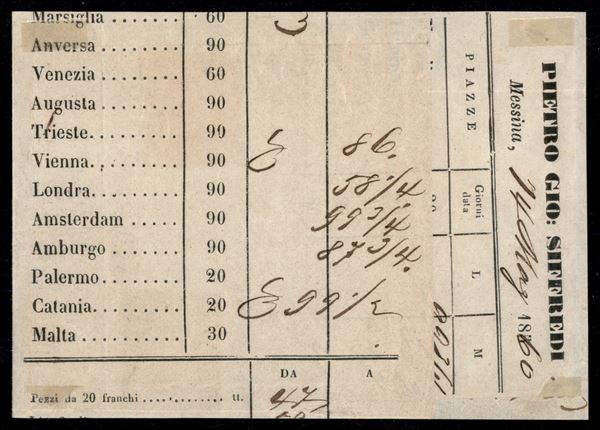 Marsiglia 60
Anversa 90
Venezia 60
Augusta 90
Trieste 90
Vienna 90 E 86.
Londra 90 58 1/4
Amsterdam 90 99 3/4
Amburgo 90 87 3/4.
Palermo 20
Catania 20 E 99 1/2
Malta 30
DA A
Pezzi da 20 franchi tt. 47
PIAZZE
Giorni
data
L M
PIETRO GIO: SIFFREDI
Messina, 14 Mag 1860